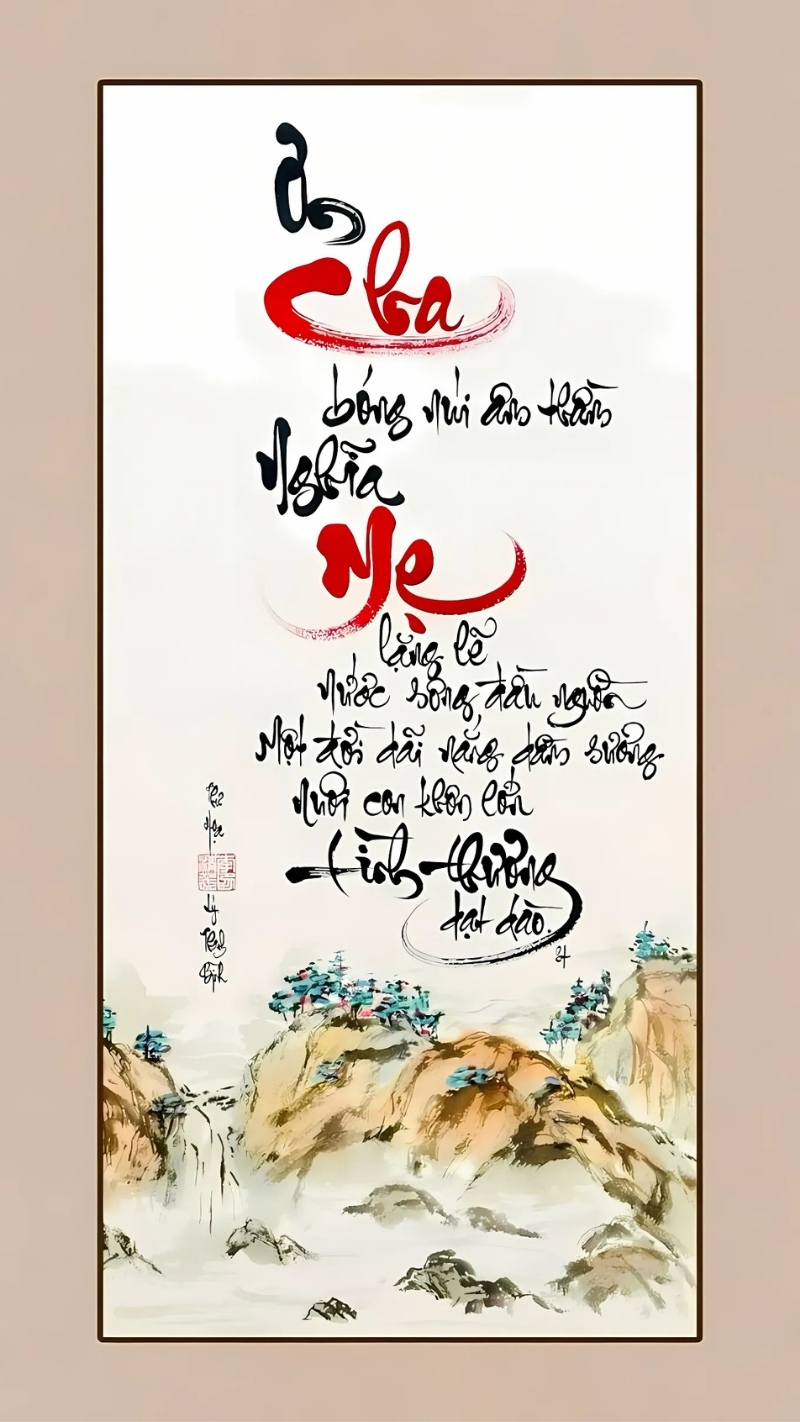 Ơn
Cha
bóng núi âm thầm
Nghĩa
Mẹ
lặng lẽ
nước sông đầu nguồn
Một đời dãi nắng dầm sương
nuôi con khôn lớn
tình thương
dạt dào.
Lý
Bình